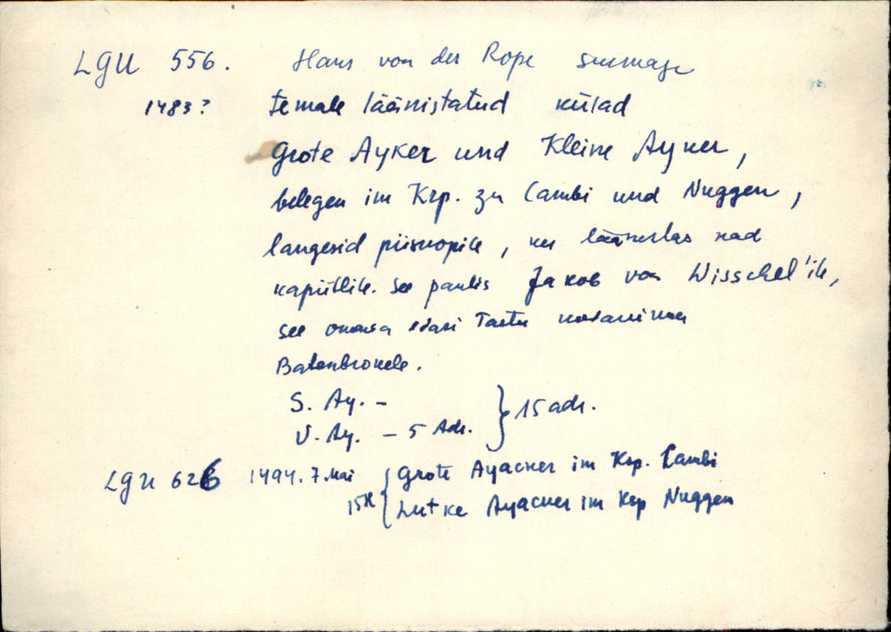 LGU 556. Hans von der Rope surmaga
1483? temale läänistatud külad
Grote Ayker und Kleine Ayker,
belegen im Krp. zu Cambi und Nuggen,
langesid piiskopile, kes läänistas nad
kapiitlile. See pantis Jakob von Wisschel'ile,
see omasa edasi Tartu
S. Ay. –
V. Ay. – 5 Adr. } 15 adr.
LGU 626 1494. 7. Mai { Grote Ayacker im Krp. Cambi
Lutke Ayacker im Krp Nuggen